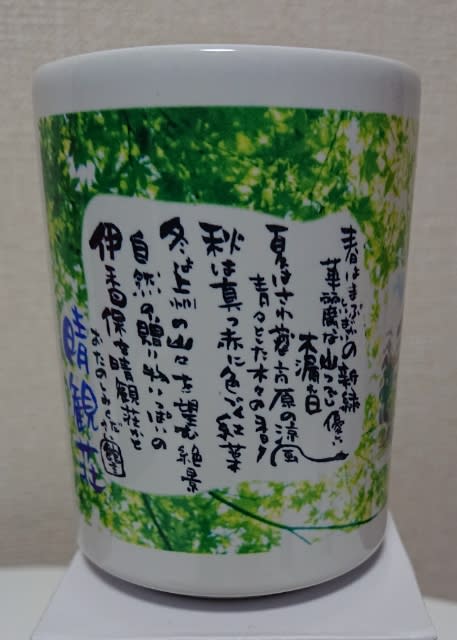 春はまぶしいばかりの新緑
華麗な山つつじ優しい
木漏れ日
夏はさわやかな高原の涼風
青々とした木々の香り
秋は真っ赤に色づく紅葉
冬は上州の山々を望む絶景
自然の贈り物いっぱいの
伊香保を晴観荘から
おたのしみください
晴観荘